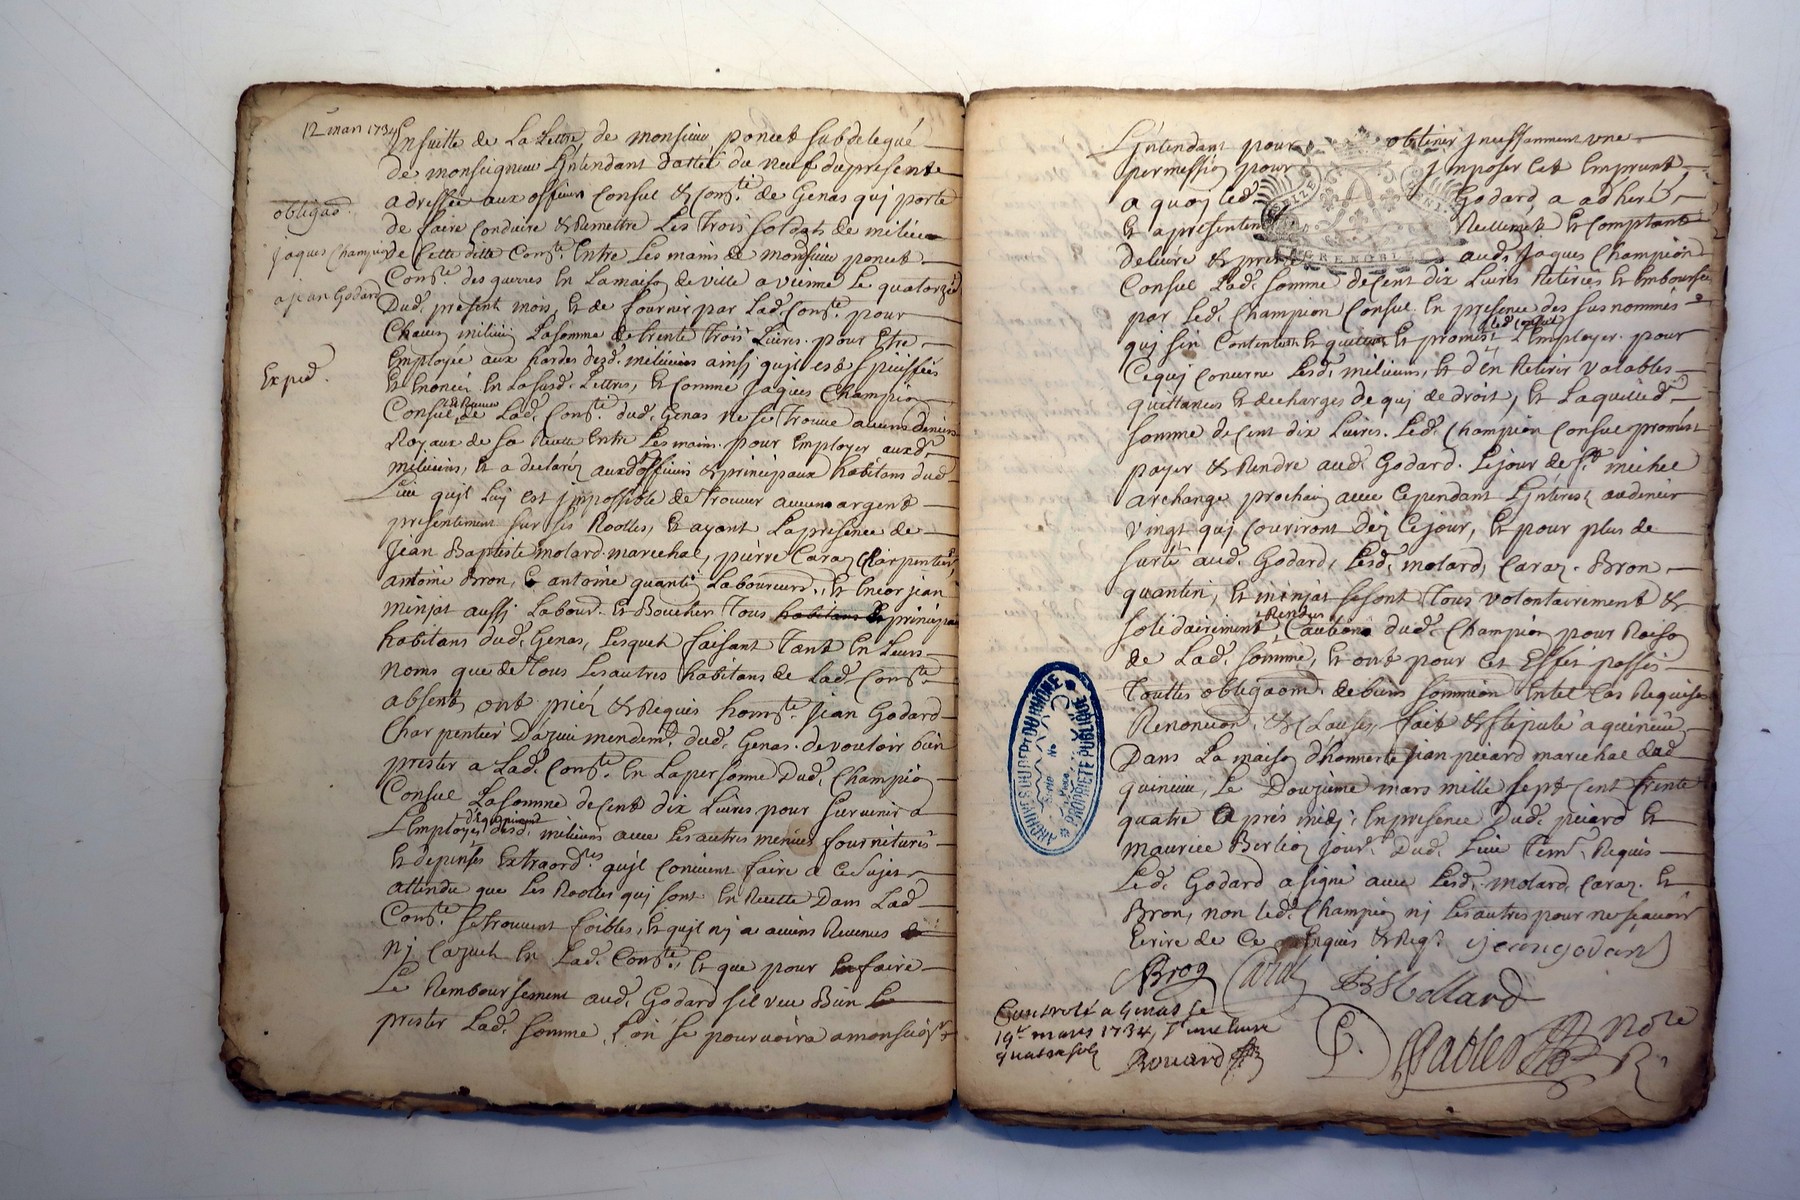 12 mars 1734
obligaon.
jaques Champion
a jean Godard
Exped.
Ensuitte de La Lettre de monsieur poncet subdelegué
de monseigneur L'jntendant dattée du neuf du present
adressée aux officiers Consul & Comté. de Genas quj porte
de faire Conduire & Remettre Les Trois soldats de milice
de Cette ditte Comté. Entre Les mains de monsieur poncet
Comre. des guerres En La maison de ville a vienne Le quatorze
Dud. present mois, Et de fournir par Lad. Comté. pour
Chacun milicien La somme de trente Trois Livres pour Etre
Employée aux hardes desd. miliciens ainsj qu'jl est
Et Enoncé En La susd. Lettres, Et Comme Jaques Champion
Consul de Lad. Comté. dud. Genas ne se Trouve aucuns deniers
Royaux de sa Recette Entre Les mains pour Employer auxd.
miliciens, Et a declaré auxd. officiers & principaux habitans dud.
Lieu qu'jl Luj est jmpossible de Trouver aucuns argent
presentement sur ses Roolles, Et ayant La presence de
Jean Baptiste molard marechal, pierre Caraz Charpentier,
antoine Bron, & antoine quantin Laboureurs, Et Encor jean
minjat aussj Labour. Et Boucher Tous habitans & principaux
habitans dud. Genas, Lesquels faisant Tant En Leurs
noms que de Tous Les autres habitans de Lad. Comté.
absents ont prié & Requis homte. jean Godard
Charpentier D'azieu mendemt. dud. Genas de vouloir bien
prester a Lad. Comté. En La personne Dud. Champion
Consul La somme de Cent dix Livres pour survenir a
L'Employ d'Equipement desd. miliciens avec Les autres menues fournitures
Et depenses Extraordres. qu'jl Convient faire a Ce sujet
attendu que Les Roolles quj sont En Recette Dans Lad.
Comté. se trouvent foibles, Et qu'jl nj a aucuns Revenus
nj Cazuels En Lad. Comté., Et que pour En faire
Le Remboursement aud. Godard s'il veu Bien
prester Lad. somme, L'on se pourvoira a monseigr.
L'jntendant pour obtenir jncessamment une
permission pour jmposer Cet Emprunt,
a quoy led. Godard a adheré,
Et a presentement Reellement Et Comptant
delivré & presté aud. Jaques Champion
Consul Lad. somme de Cent dix Livres Retirées Et Emboursées
par Led. Champion Consul En presence des sus nommés
quj s'En Contentent Et quittent Et promis Led. Consul L'Employer pour
Ce quj Concerne Lesd. miliciens, Et d'en Retirer valables
quittances Et decharges de quj de droit, Et Laquelled.
somme de Cent dix Livres. Led. Champion Consul promet
payer & Rendre aud. Godard. Le jour de st. michel
archange prochain avec Cependant L'jnterest au denier
vingt quj Couriront dez Ce jour, Et pour plus de
surté aud. Godard, Lesd. molard, Caraz. Bron,
quantin, Et minjat se sont Tous volontairement &
solidairement Rendus Cautions dud. Champion pour Raison
de Lad. somme, Et ont pour Cet Effet passés
Touttes obligaons. de biens soumission En tel Cas Requises
Renoncion. & Clauses fait & stipulé a quincieu
Dans La maison d'honnete jean picard marechal dud.
quincieu, Le Douzieme mars mille sept Cent trente
quatre Après midj, En presence Dud. picard Et
maurice Berlioz jour. Dud. Lieu Temt. Requis
Led. Godard a signé avec Lesd. molard Caraz. Et
Bron, non led. Champion nj Les autres pour ne sçavoir
Ecrire de Ce Enquis & Req.
jean godard
Bron Caraz JB Mollard
Controlé a Genas le
19e. mars 1734, r. une livre
quatre sols
Rouard
Pattes Nore
GRENOBLE
ARCHIVES DU DEPT DU RHÔNE
PROPRIÉTÉ PUBLIQUE